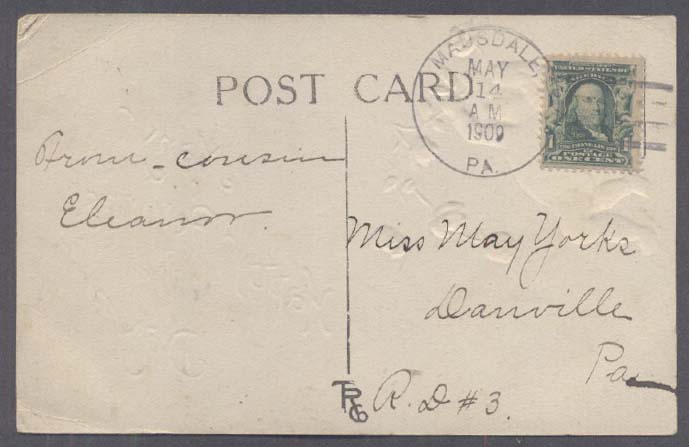 POST CARD
MAUSDALE,
MAY
14
A M
1909
PA.
UNITED STATES OF
AMERICA
1
1
POSTAGE
ONE CENT
From - cousin
Eleanor.
Miss May Yorks
Danville
Pa
R. D #3.